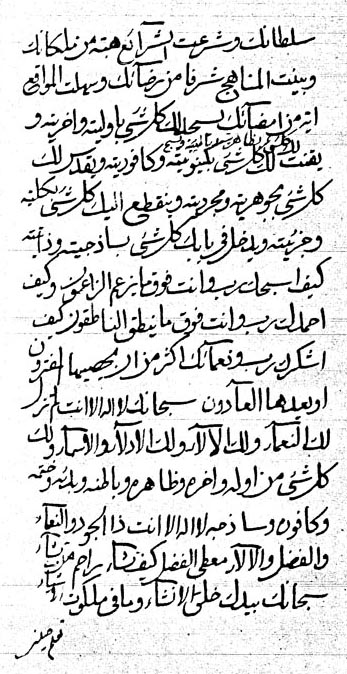 سلطانك و شرعت الشرائع هبة من ملكانك
و بينت المناهج شرفا من رضائك و سهلت المواقع
اية من امضائك يسبح لك كلشئ باوليته و اخريته و
يقنت لك كلشئ بكينونيته و كافوريته و يقدس لك
كلشئ بجوهريته و مجرديته و ينقطع اليك كلشئ بكليته
و جزئيته و يدخل في بابك كلشئ بساذجيته و ذاتيته
كيف اسبحك رب و انت فوق ما يزعم الزاعمون و كيف
احمدك رب و انت فوق ما ينطق الناطقون كيف
اشكرك رب و نعمائك اكثر من ان يحصيها المقرون
او يعدها العادون سبحانك لا اله الا انت لم تزل
لك النعماء و لك الالاء و لك الاسماء و لك
كلشئ من اوله و اخره و ظاهره و باطنه و بدئه و ختمه
و كافوره و ساذجه لا اله الا انت ذا الجود و النعماء
و الفضل و الالاء معطي الفضل كيف تشاء راحم من تشاء
سبحانك بيدك خلق الانشاء و ما في ملكوت